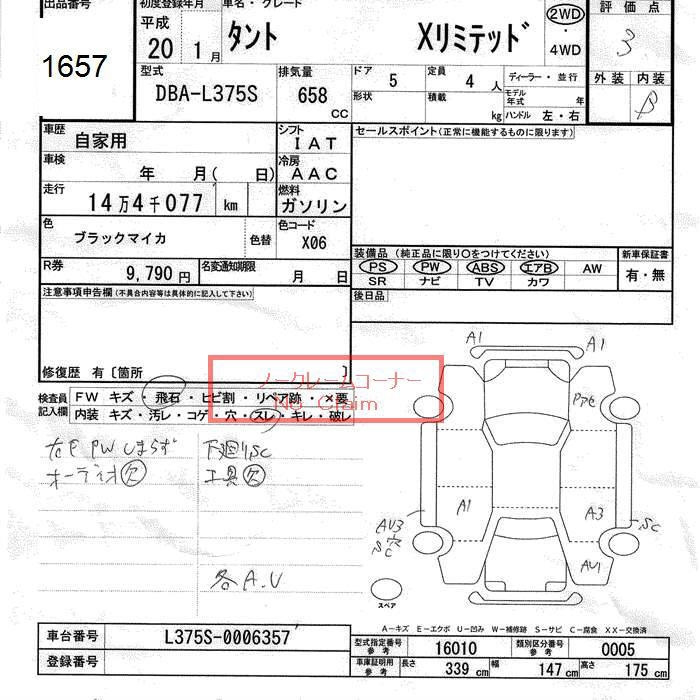 出品番号
1657
初度登録年月
平成
20 1月
車名・グレード
タント Xリミテッド
2WD
・
4WD
評価点
3
外装 内装
B
型式
DBA-L375S
排気量
658
CC
ドア 5
形状
定員 4 人
積載 kg
ディーラー・並行
モデル年式 年
ハンドル 左・右
車歴
自家用
シフト
IAT
車検
年 月( 日)
冷房
AAC
走行
14万4千077 km
燃料
ガソリン
色
ブラックマイカ
色替
色コード
X06
R券
9,790円
名変通知期限
月 日
セールスポイント(正常に機能するものに限ります)
装備品 (純正品に限り○をつけてください)
新車保証書
PS PW ABS エアB AW
SR ナビ TV カワ
有・無
後日品
注意事項申告欄(不具合内容等は具体的に記入して下さい)
修復歴 有〔箇所 〕
ノークレームコーナー
No Claim
検査員
記入欄
FW キズ・飛石・ヒビ割・リペア跡・×要
内装 キズ・汚レ・コゲ・穴・スレ・キレ・破レ
PWしまらず
オーディオ欠
下廻りSC
工具欠
各A.U
A1
A1
A1
A3
AU3
穴
SC
SC
AU1
スペア
A-キズ E-エクボ U-凹み W-補修跡 S-サビ C-腐食 XX-交換済
車台番号
L375S-0006357
登録番号
型式指定番号
参考
16010
類別区分番号
参考
0005
車庫証明用
参考
長さ 339cm
幅 147cm
高さ 175cm